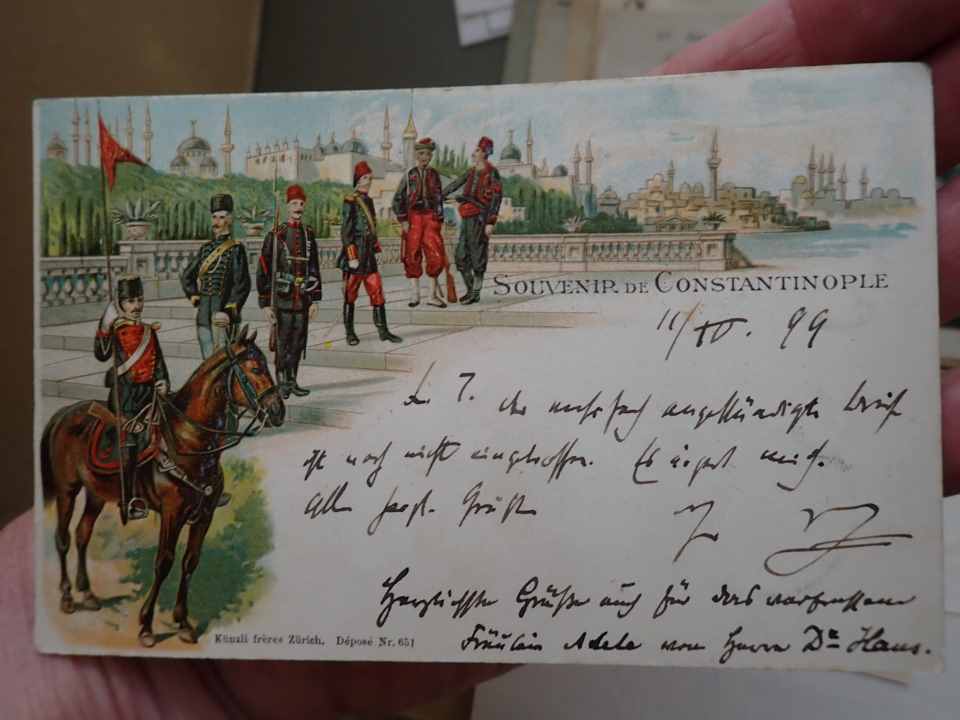 SOUVENIR DE CONSTANTINOPLE
11/IV. 99
L. T. Der mehrfach angekündigte Brief
ist noch nicht eingetroffen. Es ärgert mich.
Allen herzl. Grüße
Herzlichste Grüße auch für das
Fräulein Adele von Herrn Dr. Hans.
Künzli frères Zürich. Déposé Nr. 651